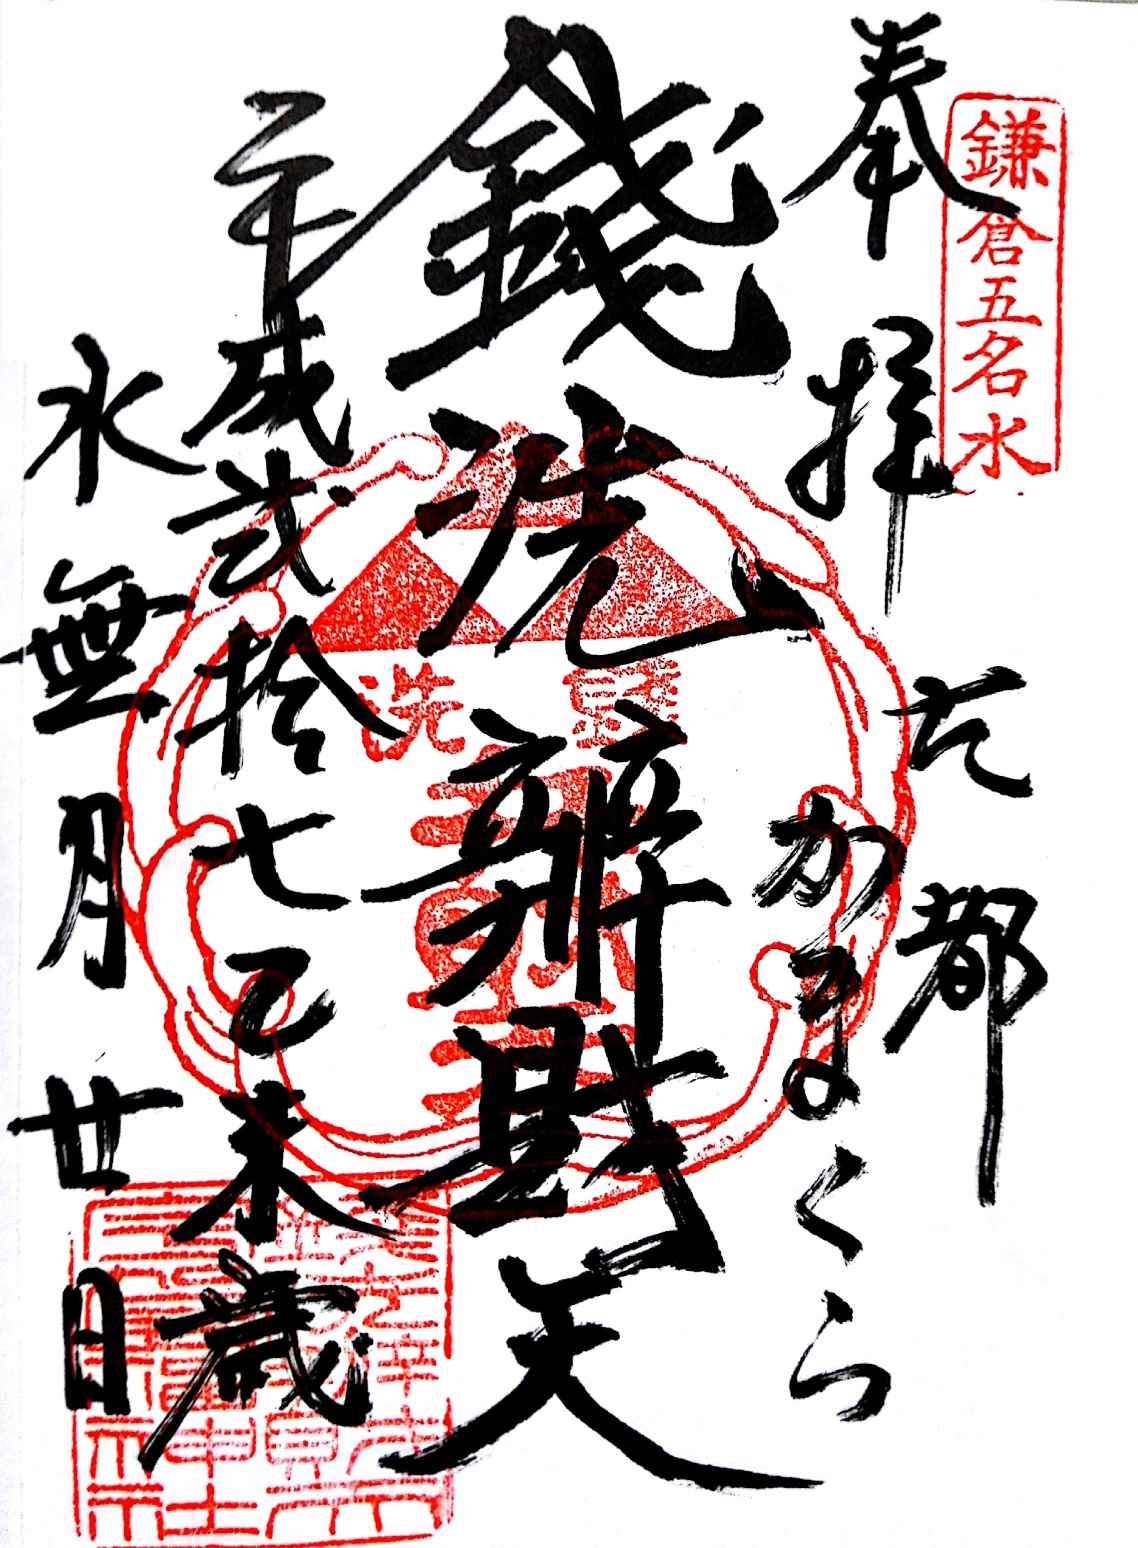 鎌倉五名水
奉拝
古都
かまくら
錢洗辨財天
平成弐拾七乙未歳
水無月廿日
錢洗